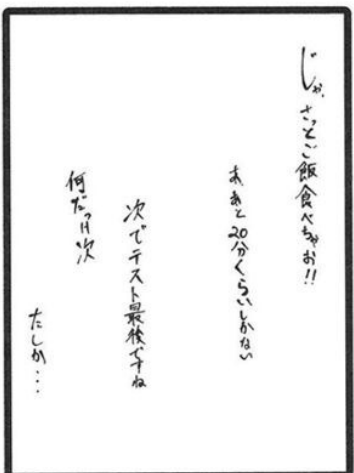 じゃ、さっとご飯食べちゃお!!
あ、あと20分くらいしかない
次でテスト最後ですね
何だっけ次
たしか...